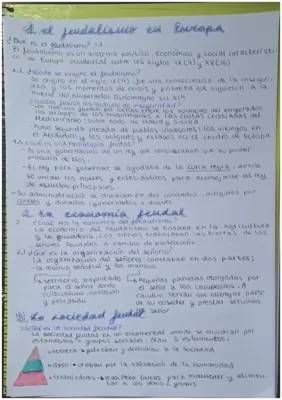 1. el feudalismo en Europa
¿Qué es el feudalismo? 1.1
El feudalismo es un sistema político, económico y social característi-
co de Europa occidental entre los siglos IX (9) y XV (15)
¿Dónde se originó el feudalismo?
Se originó en el siglo IX, fue una consecuencia de la insegu-
dad y los momentos de crisis y pobreza que siguieron a la
muerte del emperador Carlomagno su XIX
¿Cuáles fueron los motivos de inseguridad?
los ataques de los musulmanes a las costas cristianas del
Mediterráneo sobre todo de
Hubo segunda oleada de pueblos invasores: los vikingos en
el Atlántico y los búlgaros y eslavos en el centro de Europa
¿Qué es una monarquía feudal?
Es una gobernación de un rey que consideraban que su poder
procedía de Dios.
El rey para gobernar se ayudaba de la curia regia, donde
se unían los nobles y eclesiásticos para aconsejarle al rey
de asuntos principales.
Su administración se dividían en dos condados, dirigidos por
condes y ducados gobernados x duques
2. La economía feudal
¿Cuál era la economía del feudalismo?
La economía del feudalismo se basaba en la agricultura
y la ganadería. Los siervos trabajaban las tierras de los
señores feudales. A cambio de protección
¿Qué es la organización del señorío?
La organización del señorío constaban en dos partes;
la reserva señorial y los mansos
territorio explotado
para el señor donde
cultivaban
y pescado
Pequeñas parcelas otorgadas por
el señor a los campesinos. A
cambio tenían que entregar parte
de su cosecha y prestar servicios
al señor
3. La sociedad feudal
¿Qué es la sociedad feudal?
La sociedad feudal es un estamental donde se dividían por
estamentos o grupos sociales. Había 3 estamentos:
nobleza → peleaban y defendían a la sociedad
clero → oraban por la salvación de la humanidad
trabajadores → trabajaban tierras para mantener y alimen-
tar a los otros 2 grupos